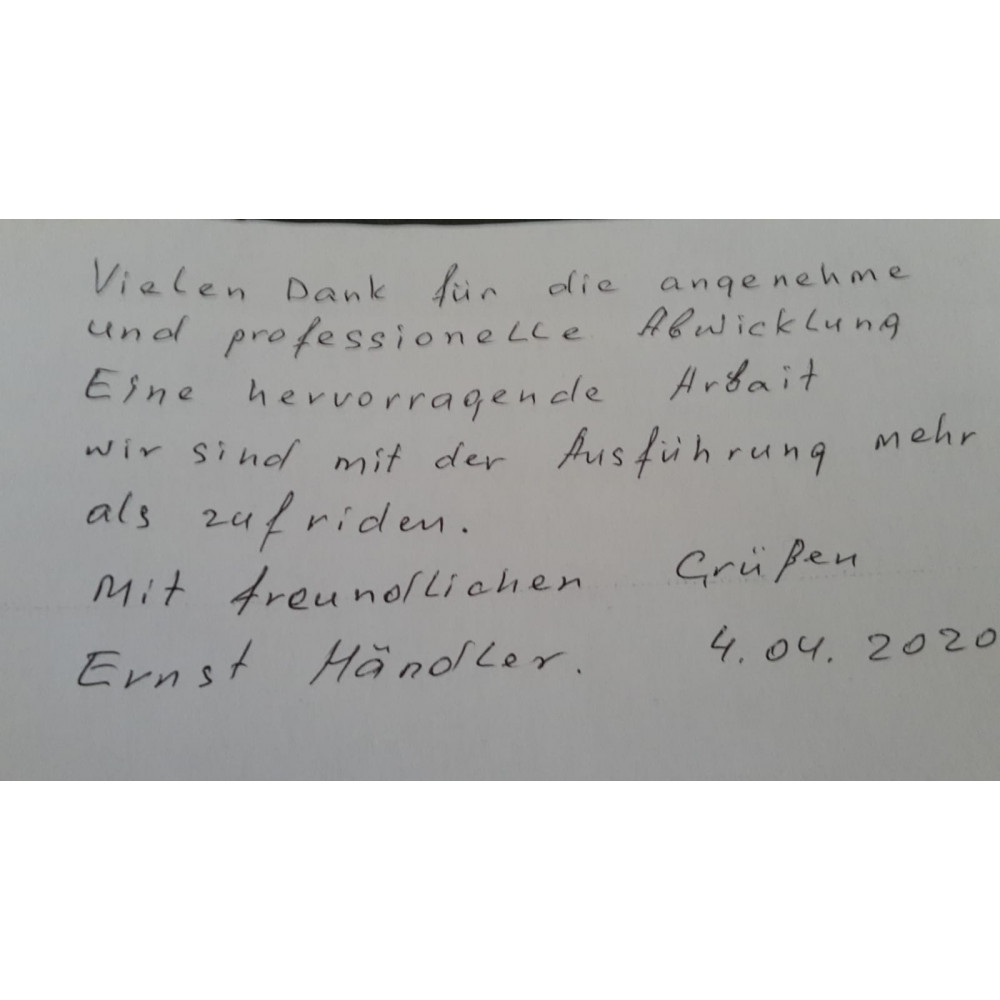 Vielen Dank für die angenehme
und professionelle Abwicklung
Eine hervorragende Arbait
wir sind mit der Ausführung mehr
als zufriden.
Mit freundlichen Grüßen
Ernst Händler. 4.04.2020